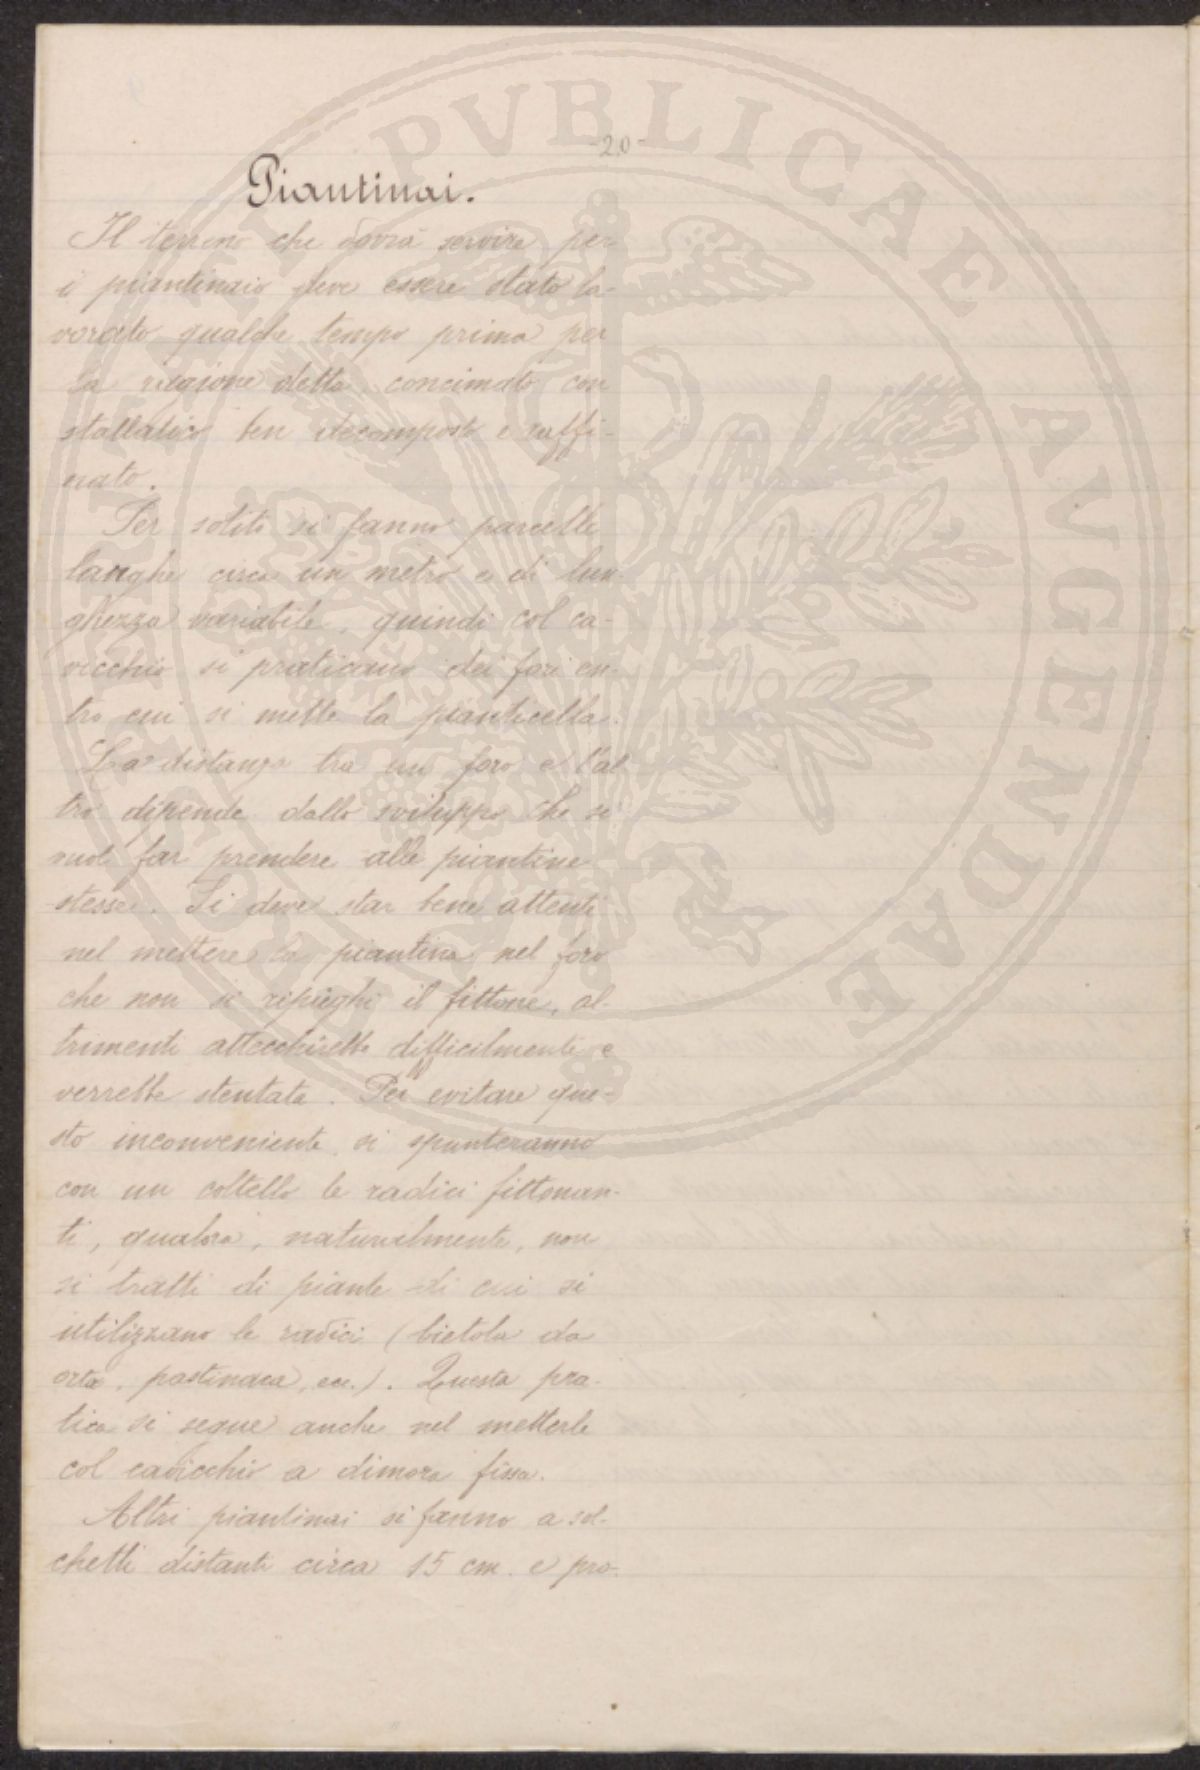 -20-
Piantinai.
Il terreno che dovrà servire per
i piantinaio deve essere stato la-
vorato qualche tempo prima per
la ragione detta, concimato con
stallatico ben decomposto e raffi-
nato.
Per solito si fanno parcelle
larghe circa un metro e di lun-
ghezza variabile, quindi col ca-
vicchio si praticano dei fori en-
tro cui si mette la pianticella.
La distanza tra un foro e l'al-
tro dipende dallo sviluppo che si
vuol far prendere alle piantine
stesse. Si deve star bene attenti
nel mettere la piantina nel foro
che non si ripieghi il fittone, al-
trimenti attecchirebbe difficilmente e
verrebbe stentata. Per evitare que-
sto inconveniente, si spunteranno
con un coltello le radici fittonan-
ti, qualora, naturalmente, non
si tratti di piante di cui si
utilizzano le radici (bietola da
orto, pastinaca, ecc.). Questa pra-
tica si segue anche nel metterle
col cavicchio a dimora fissa.
Altri piantinai si fanno a sol-
chetti distanti circa 15 cm. e pro-
PUBLICAE AUGENDAE